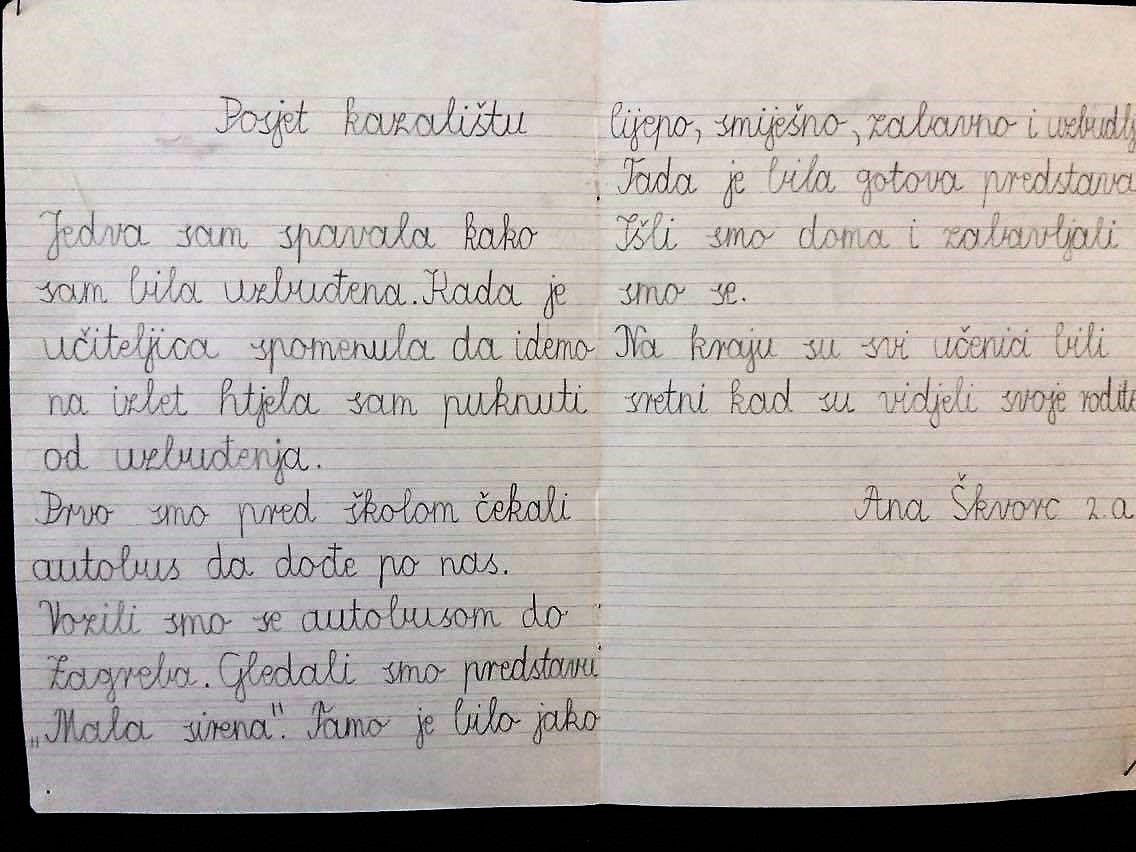 Posjet kazalištu
Jedva sam spavala kako
sam bila uzbuđena. Kada je
učiteljica spomenula da idemo
na izlet htjela sam puknuti
od uzbuđenja.
Prvo smo pred školom čekali
autobus da dođe po nas.
Vozili smo se autobusom do
Zagreba. Gledali smo predstavu
„Mala sirena". Tamo je bilo jako
lijepo, smiješno, zabavno i
Tada je bila gotova predstava
Išli smo doma i zabavljali
smo se.
Na kraju su svi učenici bili
sretni kad su vidjeli svoje
Ana Škvorc 2.a